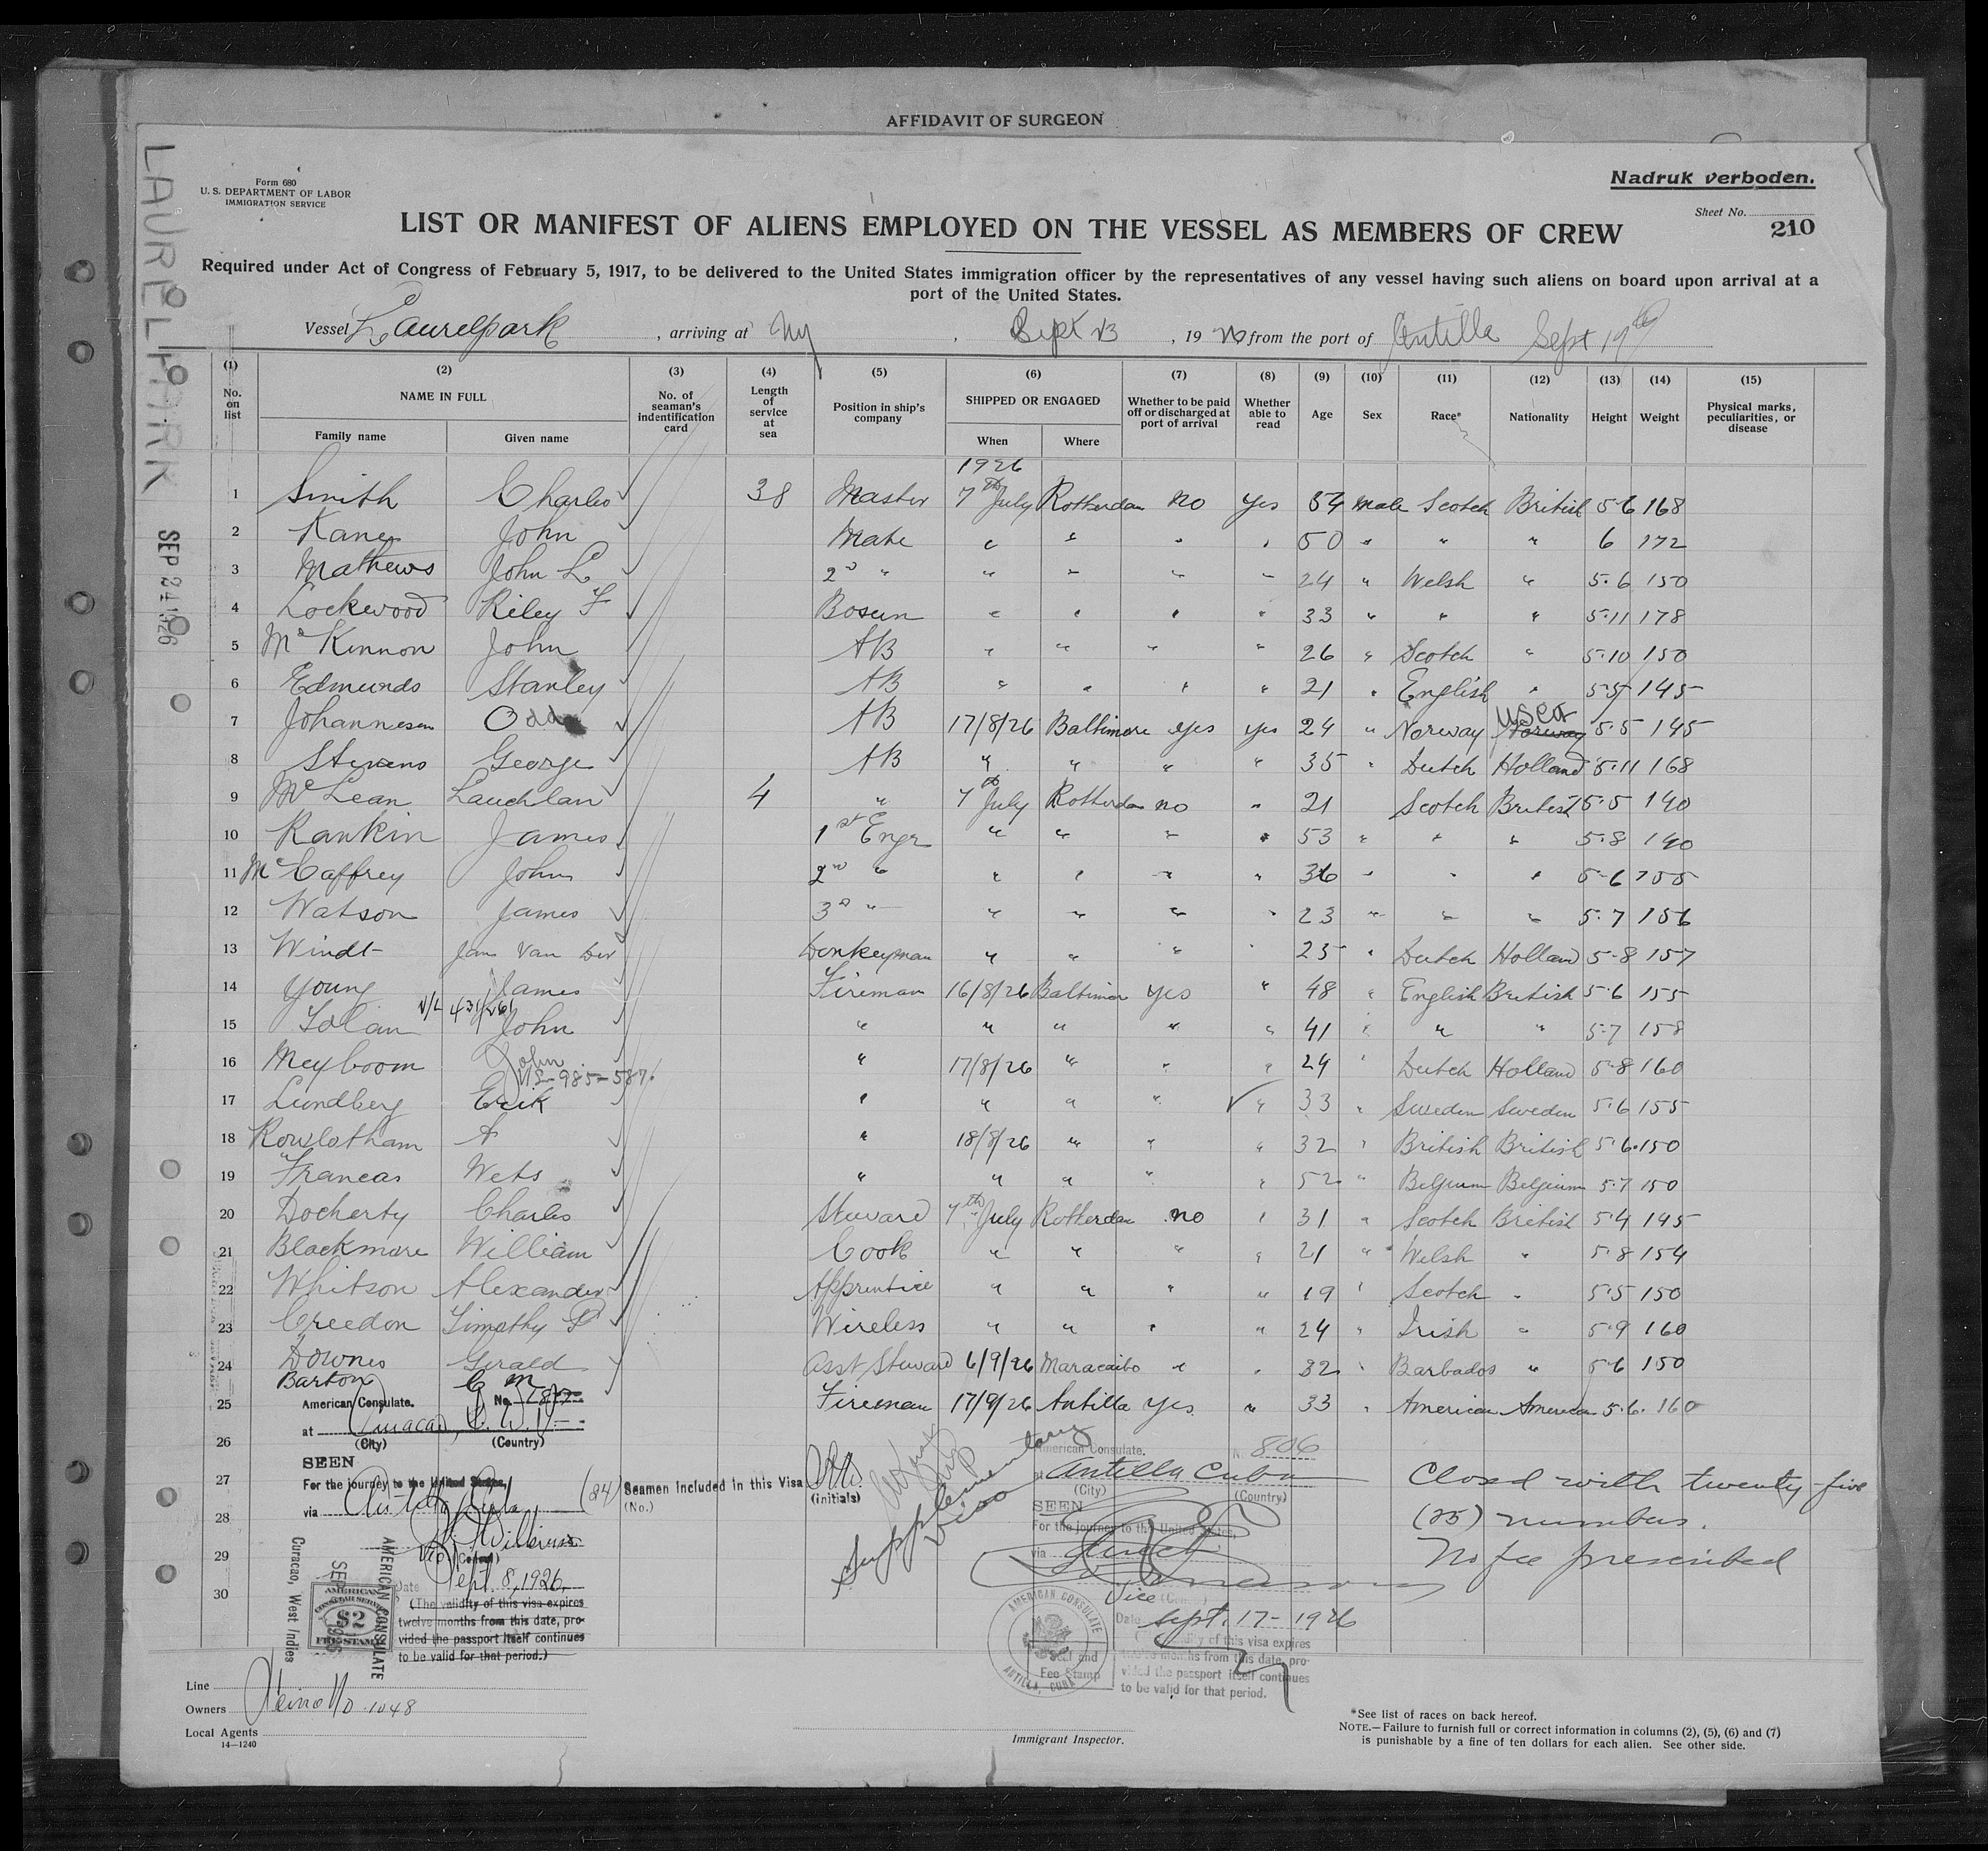 AFFIDAVIT OF SURGEON
LAURELPARK
SEP 24 1926
Form 680
U. S. DEPARTMENT OF LABOR
IMMIGRATION SERVICE
Nadruk verboden.
Sheet No.
210
LIST OR MANIFEST OF ALIENS EMPLOYED ON THE VESSEL AS MEMBERS OF CREW
Required under Act of Congress of February 5, 1917, to be delivered to the United States immigration officer by the representatives of any vessel having such aliens on board upon arrival at a
port of the United States.
Vessel Laurelpark, arriving at Ny, Sept 23, 19 26 from the port of Antilla Sept 19th
(1) (2) (3) (4) (5) (6) (7) (8) (9) (10) (11) (12) (13) (14) (15)
No. on list NAME IN FULL Family name Given name No. of seaman's indentification card Length of service at sea Position in ship's company SHIPPED OR ENGAGED When Where Whether to be paid off or discharged at port of arrival Whether able to read Age Sex Race* Nationality Height Weight Physical marks, peculiarities, or disease
1926
1 Smith Charles 38 Master 7th July Rotterdam no yes 54 male Scotch British 5.6 168
2 Kane John Mate " " " " 50 " " " 6 172
3 Mathews John L 2nd " " " " " 24 " Welsh " 5.6 150
4 Lockwood Riley F Bosun " " " " 33 " " " 5.11 178
5 McKinnon John AB " " " " 26 " Scotch " 5.10 150
6 Edmunds Stanley AB " " " " 21 " English " 5.5 145
7 Johannesen Odd AB 17/8/26 Baltimore yes yes 24 " Norway Norway 5.5 145
8 Stevens George AB " " " " 35 " Dutch Holland 5.11 168
9 McLean Lauchlan 4 " 7th July Rotterdam no " 21 Scotch British 5.5 140
10 Rankin James 1st Engr " " " " 53 " " " 5.8 140
11 McCaffrey John 2nd " " " " " 36 " " " 5.6 155
12 Watson James 3rd " " " " " 23 " " " 5.7 156
13 Windt Jan Van Der Donkeyman " " " " 25 " Dutch Holland 5.8 157
14 Young James Fireman 16/8/26 Baltimore yes " 48 " English British 5.6 155
V/L 431/261
15 Tolan John " " " " " 41 " " " 5.7 158
16 Meyboom John " 17/8/26 " " " 24 " Dutch Holland 5.8 160
VL-985-587.
17 Lundberg Erik " " " " " 33 " Sweden Sweden 5.6 155
18 Rowlotham A " 18/8/26 " " " 32 " British British 5.6 150
19 Francas Wets " " " " " 52 " Belgium Belgium 5.7 150
20 Docherty Charles Steward 7th July Rotterdam no " 31 " Scotch British 5.4 145
21 Blackmore William Cook " " " " 21 " Welsh " 5.8 154
22 Whitson Alexander Apprentice " " " " 19 " Scotch " 5.5 150
23 Creedon Timothy P Wireless " " " " 24 " Irish " 5.9 160
24 Downes Gerald Asst Steward 6/9/26 Maracaibo " " 32 " Barbados " 5.6 150
25 Barton C M Fireman 17/9/26 Antilla Yes " 33 " American American 5.6. 160
26
27
28
29
30
American Consulate. No.
at Curacao, D. W. I.
(City) (Country)
SEEN
For the journey to the United States,
via Antilla Cuba
(24) Seamen Included in this Visa
(No.) (Initials)
Vice (Consul)
Date Sept. 8, 1926.
(The validity of this visa expires
twelve months from this date, pro-
vided the passport itself continues
to be valid for that period.)
AMERICAN CONSULATE
Curacao, West Indies
AMERICAN
CONSULAR SERVICE
$2
FEE STAMP
Supplementary
Visa
American Consulate. No. 806
at Antilla Cuba
(City) (Country)
SEEN
For the journey to the United States,
via direct
Vice (Consul)
Date Sept. 17 - 1926
(The validity of this visa expires
twelve months from this date, pro-
vided the passport itself continues
to be valid for that period.
AMERICAN CONSULATE
ANTILLA, CUBA
Seal and
Fee Stamp
Closed with twenty-five
(25) numbers.
No fee prescribed
Line
Owners
Local Agents
14—1240
Immigrant Inspector.
*See list of races on back hereof.
NOTE.—Failure to furnish full or correct information in columns (2), (5), (6) and (7)
is punishable by a fine of ten dollars for each alien. See other side.